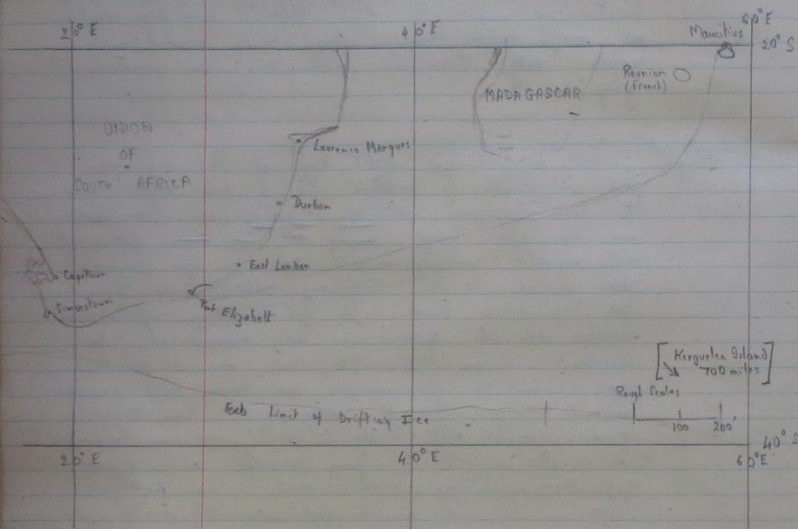 20°E
40°E
60°E
Mauritius
20° S
Reunion
(French)
MADAGASCAR
UNION
OF
SOUTH AFRICA
Lourenco Marques
Durban
East London
Capetown
Simonstown
Port Elizabeth
[Kerguelen Island
700 miles]
Rough Scales
100 200'
Limit of Drifting Ice
40° S
20°E
40°E
60°E